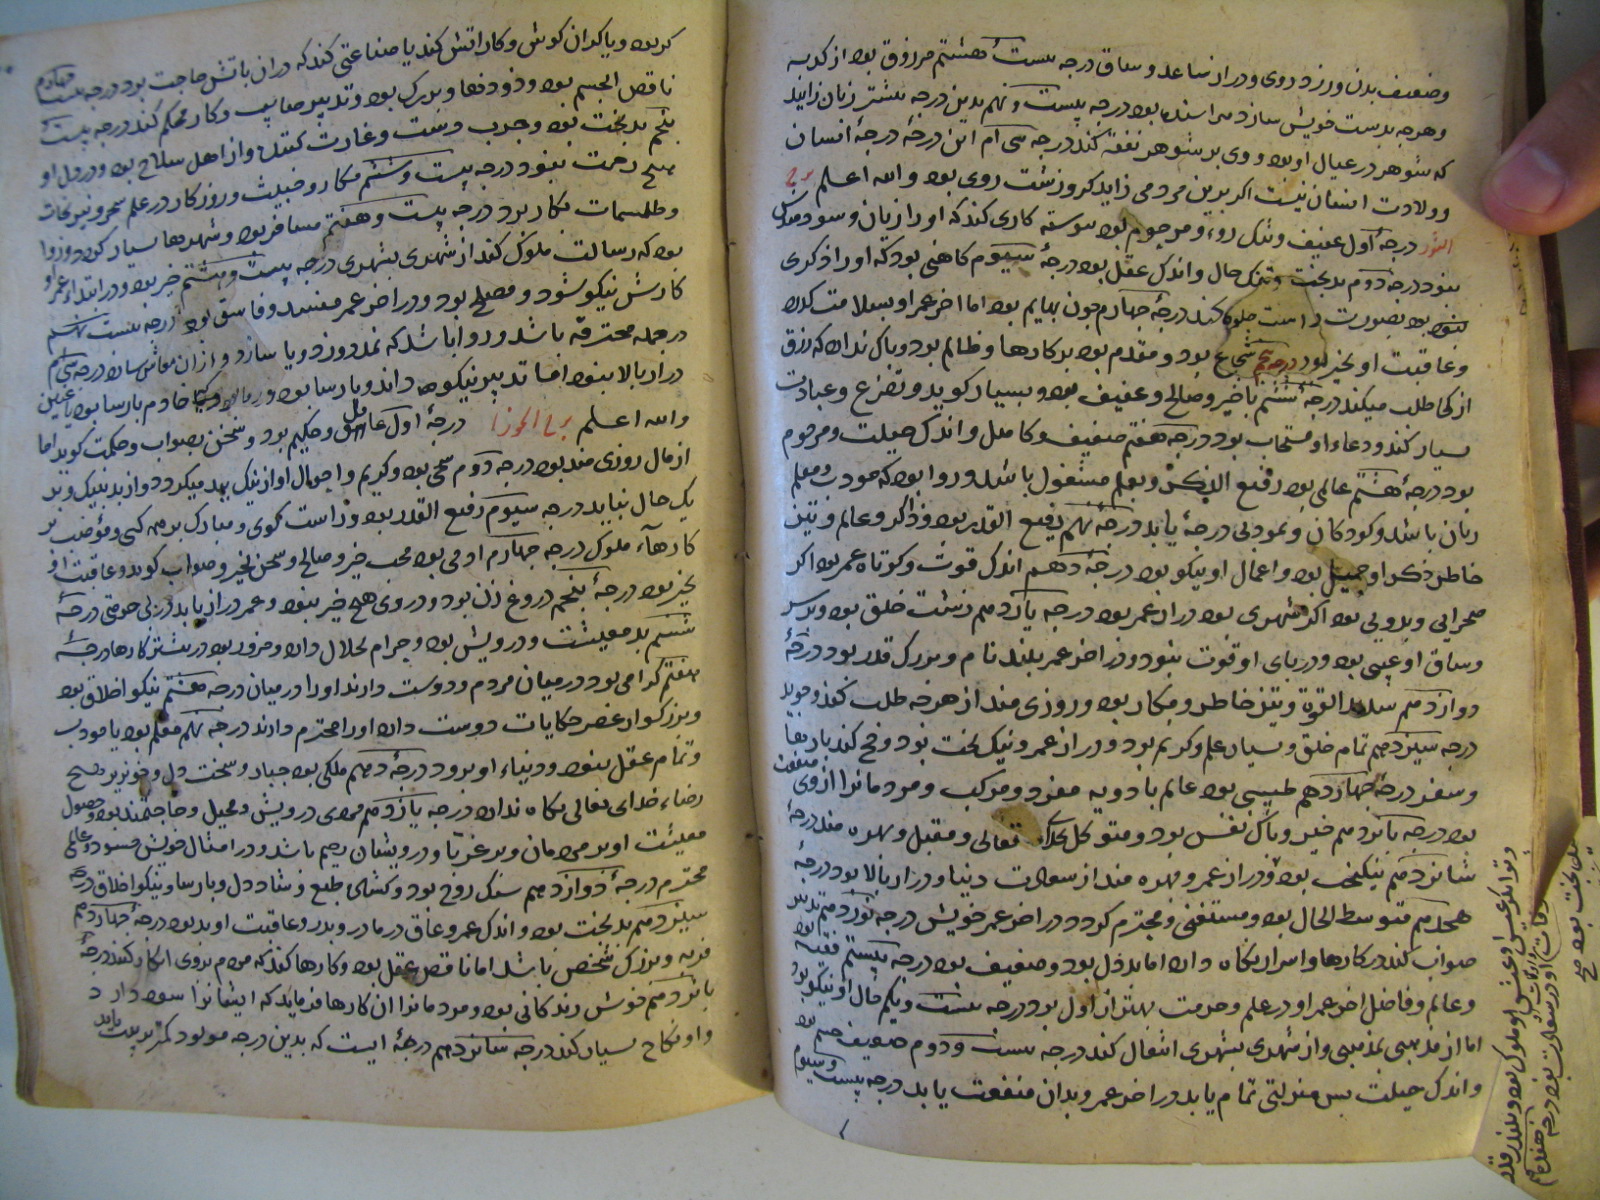 وضعیف بدن و زرد روی و دراز ساعد و ساق درجه بیست هشتم مرزوق بود از کد به
وهرچه بدست خویش سازد بود درجه بیست و نهم بدین درجه بیشتر زنان زایند
که شوهر در عیال او بود و وی بر شوهر نفقه کند درجه سی ام این درجهٔ درجهٔ انسان
و ولادت انسان نیست اکر برین مردمی زاید کروزشت روی بود والله اعلم برج
الثور درجهٔ اول عنیف و تنک روی و مرحوم بود پیوسته کاری کند که او را زیان و سود
نبود درجه دوم بدبخت و تنک حال و اندک عقل بود درجهٔ سیوم کاهنی بود که او را ذکری
نبود بصورت راست جلوه کند درجهٔ چهارم چون بهایم بود اما اخر عمر او بسلامت
وعاقبت او بخیر بود درجه پنجم شجاع بود و مقدم بود بر کارها و ظالم بود و باک ندارد که رزق
از کجا طلب میکند درجهٔ ششم با خیر و صالح و عفیف بود و بسیار کوید و تضرع و عبادت
بسیار کند و دعاء او مستجاب بود درجه هفتم ضعیف و کاهل و اندک حیلت و مرحوم
بود درجهٔ هشتم عالمی بود رفیع الذکر و بعلم مشغول باشد و روا بود که مودب و معلم
زنان باشد و کودکان و نمود بی درجهٔ یابد درجهٔ نهم رفیع القدر بود و ذاکر و عالم و تیز
خاطر ذکر او جمیل بود و اعمال او نیکو بود درجهٔ دهم اندک قوت و کوتاه عمر بود اکر
صحرایی و بدویی بود اکر شهری بود دراز عمر بود درجه یازدهم زشت خلق بود
وساق او و در پای او قوت نبود و در اخر عمر بلند نام و بزرک قدر بود درجهٔ
دوازدهم شدید القوة و تیز خاطر و مکار بود و روزی مند از هرچه طلب کند و جوید
درجه سیزدهم تمام خلق و بسیار علم و کریم بود و دراز عمر و نیک بخت بود و حج کند
وسفر درجهٔ چهاردهم طبیبی بود عالم بادویه مفرد و مرکب و مردمانرا از وی منفعت
بود درجه پانزدهم خیر و پاک نفس بود و متوکل بخدای تعالی و مقبل و بهره مند درجهٔ
شانزدهم نیکبخت بود و دراز عمر و بهره مند از سعادت دنیا و دراز بالا بود درجهٔ
هجدهم متوسط الحال بود و مستغنی و محترم کردد در اخر عمر خویش درجه نوزدهم تدبیر
صواب کند در کارها و اسرار نکاه دارد اما بددل بود و ضعیف بود درجه بیستم فقیه بود
وعالم و فاضل اخر عمر او در علم و حرمت بهتر از اول بود درجه بیست و یکم حال او نیکو بود
اما از مذهبی بمذهبی و از شهری بشهری انتقال کند درجه بیست و دوم ضعیف جسم بود
و اندک حیلت پس منزلتی تمام یابد در اخر عمر و بدان منفعت یابد درجه بیست و سیوم
و توانکر عیش او و بلند قدر
او در سعادت بود درجه هفدهم
کربود و یا کدان کوش و کار اتش کند یا صناعتی کند که دران باتش حاجت بود درجه بیست چهارم
ناقص الجسم بود و ذو دها و بزرک بود و تدبیر صایب و کار محکم کند درجه بیست
پنجم بدبخت بود و حرب و غارت کند و از اهل سلاح بود و در دل او
هیچ رحمت نبود درجه بیست و ششم مکار و خبیث و روزکار در علم سحر و نیرنجات
و طلسمات بکار برد درجه بیست و هفتم مسافر بود و شهرها بسیار کردد و روا
بود که رسالت ملوک کند از شهری بشهری درجه بیست و هشتم خیر بود و در ابتداء عمر
کارش نیکو شود و مصلح بود و در اخر عمر مفسد و فاسق بود درجه بیست نهم
در جمله محترفه باشد و روا باشد که نمد دوزد و یا سازد و از ان معاش سازد درجه سی ام
دراز بالا بود اما تدبیر نیکو داند و پارسا بود خادم پارسا بود یا عنین
والله اعلم برج الجوزا درجهٔ اول عاقل و حکیم بود و سخن بصواب و حکمت کوید اما
از مال روزی مند بود درجه دوم سخی بود و کریم و احوال او از نیک ببد میکردد و از بد بنیک و بر
یک حال نپاید درجه سیوم رفیع القدر بود و راست کوی و مبارک بر هر کسی و مفوض بر
کارهاء ملوک درجه چهارم ادمی بود محب خیر و صالح و سخن بخیر و صواب کوید و عاقبت او
بخیر بود درجهٔ پنجم دروغ زن بود و در وی هیچ خیر نبود و عمر دراز یابد در بی حرمتی درجهٔ
ششم بد معیشت و درویش بود و حرام بحلال دارد و مزور بود در بیشتر کارها درجهٔ
هفتم کرامی بود در میان مردم و دوست دارند او را درمیان درجه هشتم نیکو اخلاق بود
و بزرکوار عنصر حکایات دوست دارد او را محترم دارند درجه نهم معلم بود یا مودب
و تمام عقل نبود و دنیاء او برود درجهٔ دهم ملکی بود جبار و سخت دل و خونریز و هیچ
رضاء خدای تعالی نکاه ندارد درجه یازدهم مردی درویش و معیل و حاجتمند بود و حصول
معیشت او بر مردمان و بر غربا و درویشان رحیم باشد و در امثال خویش محسود و عالم
محترم درجهٔ دوازدهم سبک روح بود و کشاده طبع و شاد دل و پارسا و نیکو اخلاق درجه
سیزدهم بدبخت بود و اندک عمر و عاق در مادر و پدر و عاقبت او بد بود درجهٔ چهاردهم
فربه و بزرک شخص باشد اما ناقص عقل بود و کارها کند که مردم بر وی انکار کنند درجهٔ
پانزدهم خوش زندکانی بود و مردمانرا ان کارها فرماید که ایشانرا سود دارد
و او نکاح بسیار کند درجه شانزدهم درجهٔ ایست که بدین درجه مولود کمتر